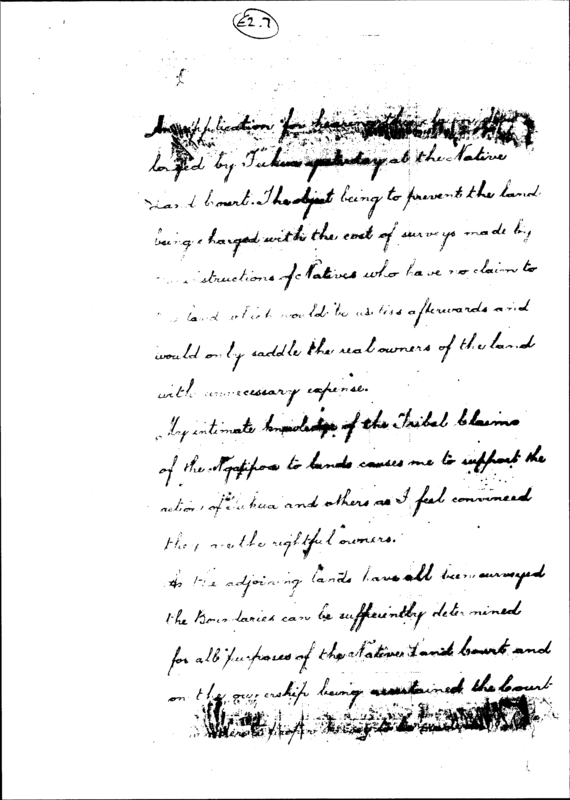 E2.7
An application for hearing
lodged by Tuhua yesterday at the Native
Land Court. The object being to prevent the land
being charged with the cost of surveys made by
instructions of Natives who have no claim to
land which would be useless afterwards and
would only saddle the real owners of the land
with unnecessary expense.
My intimate knowledge of the Tribal Claims
of the Ngatipoa to lands causes me to support the
action of Tuhua and others as I feel convinced
they are the rightful owners.
As the adjoining lands have all been surveyed
the Boundaries can be sufficiently determined
for all purposes of the Native Land Court and
on the ownership being ascertained the Court
proper survey to be